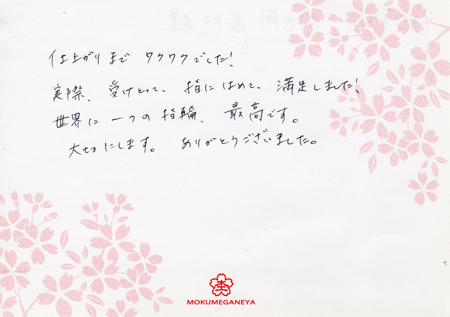 仕上がりまで ワクワクでした!
実際、受けとって、指にはめて、満足しました!
世界に一つの指輪、最高です。
大切にします。 ありがとうございました。
MOKUMEGANEYA